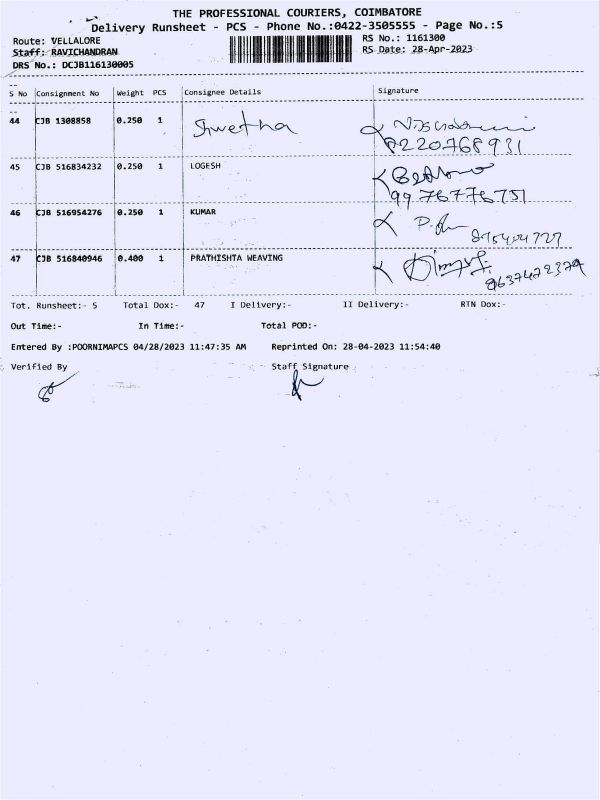 THE PROFESSIONAL COURIERS, COIMBATORE
Delivery Runsheet - PCS - Phone No.:0422-3505555 - Page No.:5
Route: VELLALORE
RS No.: 1161300
Staff: RAVICHANDRAN
RS Date: 28-Apr-2023
DRS No.: DCJB116130005
S No Consignment No Weight PCS Consignee Details Signature
44 CJB 1308858 0.250 1 Shwetha
8220768931
45 CJB 516834232 0.250 1 LOGESH
9976776751
46 CJB 516954276 0.250 1 KUMAR
47 CJB 516840946 0.400 1 PRATHISHTA WEAVING
Tot. Runsheet:- 5 Total Dox:- 47 I Delivery:- II Delivery:- RTN Dox:-
Out Time:- In Time:- Total POD:-
Entered By :POORNIMAPCS 04/28/2023 11:47:35 AM Reprinted On: 28-04-2023 11:54:40
Verified By Staff Signature